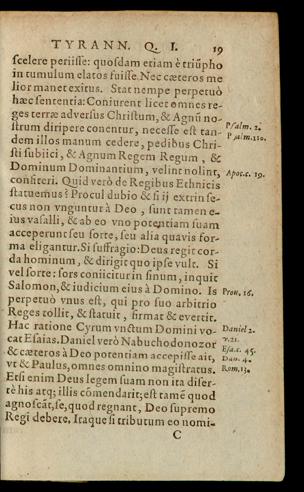 TYRANN. Q. I. 19
scelere periisse: quosdam etiam è triũpho
in tumulum elatos fuisse. Nec cæteros me
lior manet exitus. Stat nempe perpetuò
hæc sententia: Coniurent licet omnes re-
ges terræ adversus Christum, & Agnũ no-
strum diripere conentur, necesse est tan-
dem illos manum cedere, pedibus Chri-
sti subiici, & Agnum Regem Regum, &
Dominum Dominantium, velint nolint,
confiteri. Quid verò de Regibus Ethnicis
statuemus? Proculdubio & si ij extrin se-
cus non vnguntur à Deo, sunt tamen e-
ius vasalli, & ab eo vno potentiam suam
acceperunt seu sorte, seu alia quavis for-
ma eligantur. Si suffragio: Deus regit cor-
da hominum, & dirigit quo ipse vult. Si
vel sorte: sors coniicitur in sinum, inquit
Salomon, & iudicium eius à Domino. Is
perpetuò vnus est, qui pro suo arbitrio
Reges tollit, & statuit, firmat & evertit.
Hac ratione Cyrum vnctum Domini vo-
cat Esaias. Daniel verò Nabuchodonozor
& cæteros à Deo potentiam accepisse ait,
vt & Paulus, omnes omnino magistratus.
Etsi enim Deus legem suam non ita diser-
tè his atq; illis cõmendarit; est tamẽ quod
agnoscãt, se, quod regnant, Deo supremo
Regi debere. Itaque si tributum eo nomi-
C
Psalm. 2.
Psalm. 110.
Apoc. c. 19.
Prou. 16.
Daniel 2.
v. 21.
Esa. c. 45.
Dan. 4.
Rom. 13.